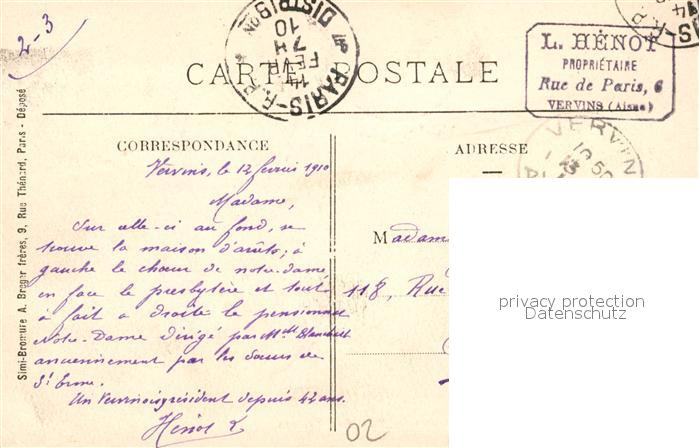 2-3
CARTE POSTALE
PARIS-R.P. DISTRIBON
7H
14
FEV
10
L. HÉNOT
PROPRIÉTAIRE
Rue de Paris, 6
VERVINS (Aisne)
VERVINS
CORRESPONDANCE
ADRESSE
Vervins, le 12 février 1910
Madame,
Sur celle-ci au fond, se
trouve la maison d'arrêts; à
gauche le chœur de notre-dame
en face le presbytère et tout
à fait a droite le pensionnat
Notre-Dame dirigé par Melle
anciennement par les sœurs de
St Erme.
Un Vervinois président depuis 42 ans.
Hénot L
Madam
118, Rue
Simi-Bromure A. Breger frères, 9, Rue Thénard, Paris - Déposé
privacy protection
Datenschutz
02